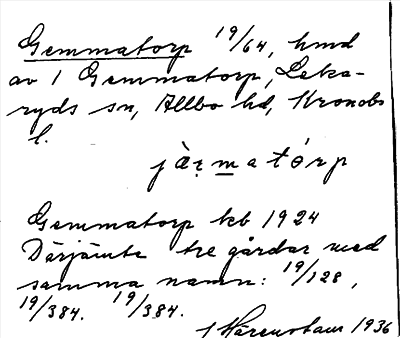 Gemmatorp 19/64, hmd
av 1 Gemmatorp, Leka-
ryds sn, Allbo hd, Kronobs
l.
jàṛmatórp
Gemmatorp kb 1924
Därjämte tre gårdar med
samma namn: 19/128,
19/384. 19/384.
1936